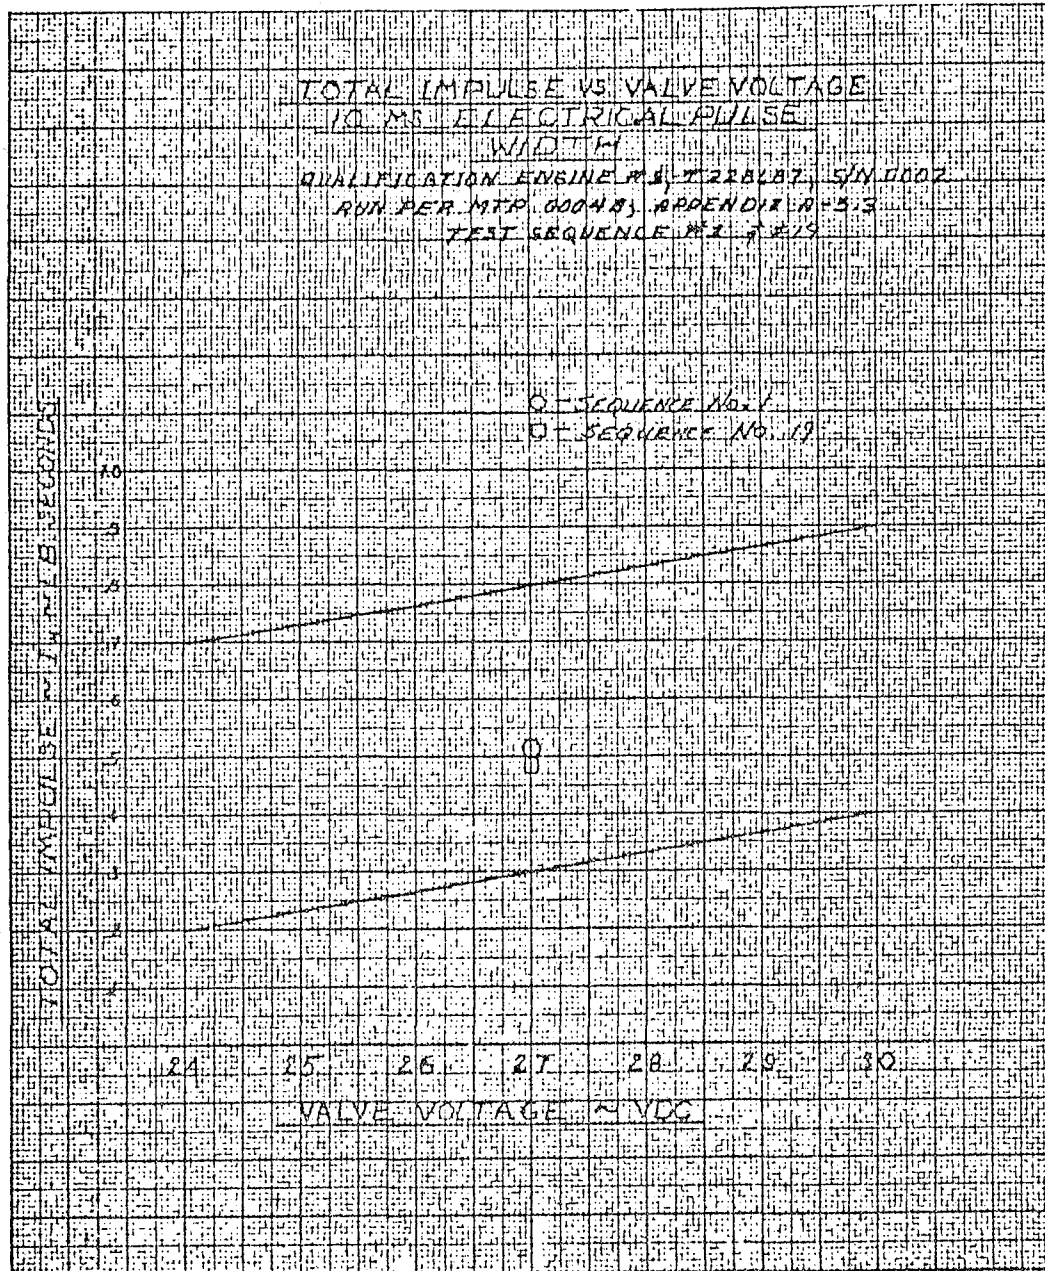 TOTAL IMPULSE VS VALVE VOLTAGE
10 MS ELECTRICAL PULSE
WIDTH
QUALIFICATION ENGINE #1, S/N 0002
RUN PER MTP 0004B, APPENDIX A-3.3
TEST SEQUENCE #1 & #19
O - SEQUENCE No. 1
□ - SEQUENCE NO. 19
TOTAL IMPULSE ~ IN ~ LB SECONDS
1.0
.9
.8
.7
.6
.5
.4
.3
.2
.1
24 25 26 27 28 29 30
VALVE VOLTAGE ~ VDC